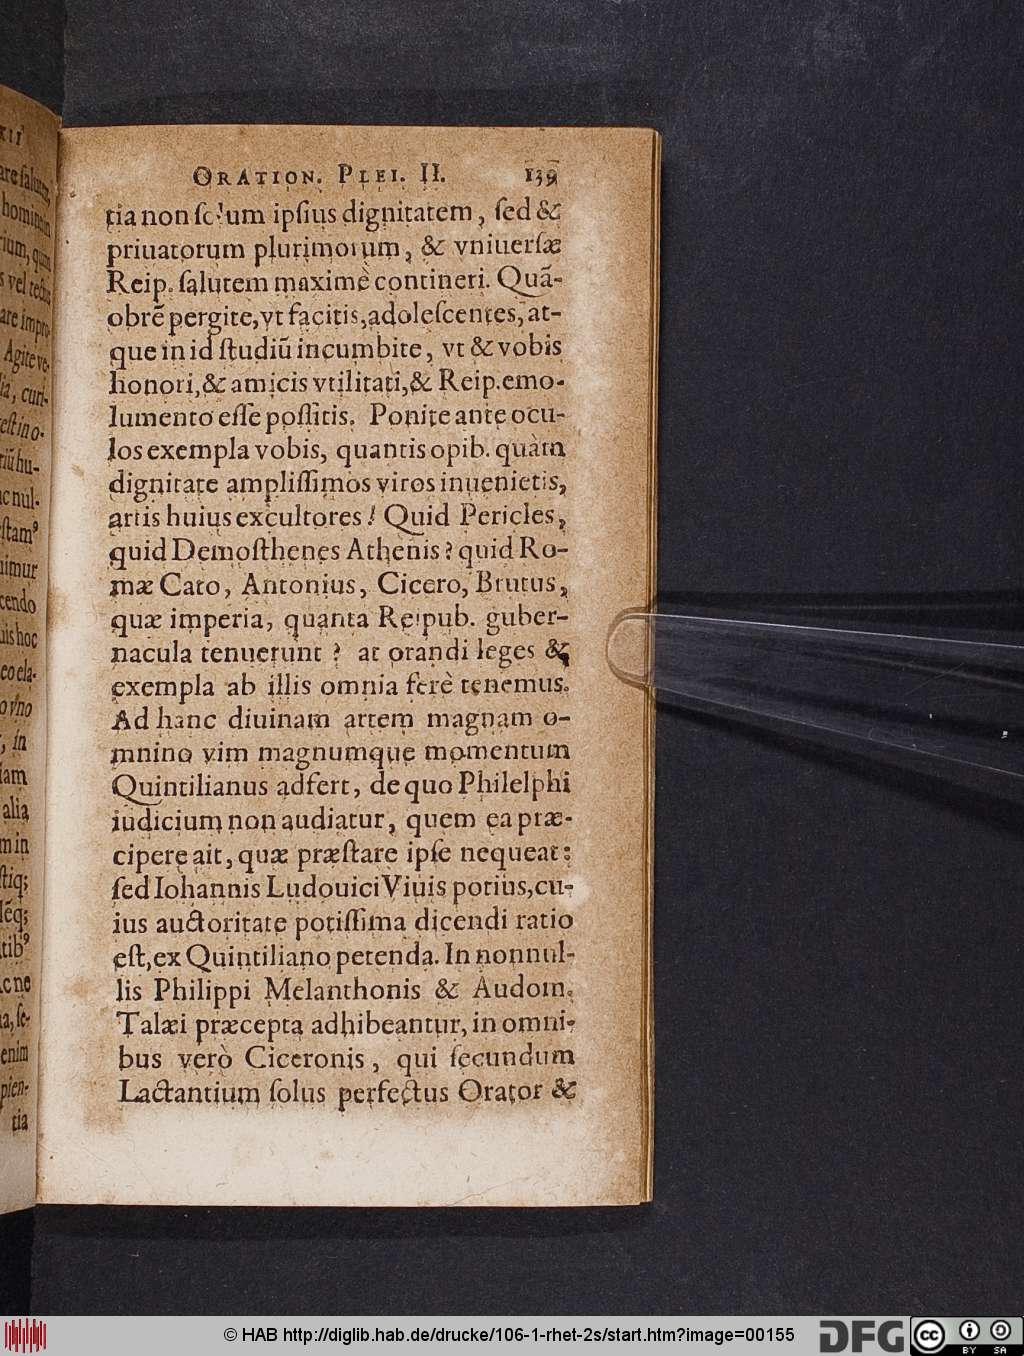 ORATION. PLEI. II. 139
tia non ſolum ipſius dignitatem, ſed &
priuatorum plurimorum, & vniuerſæ
Reip. ſalutem maximè contineri. Quã-
obrẽ pergite, vt facitis, adoleſcentes, at-
que in id ſtudiũ incumbite, vt & vobis
honori, & amicis vtilitati, & Reip. emo-
lumento eſſe poſſitis. Ponite ante ocu-
los exempla vobis, quantis opib. quàm
dignitate ampliſſimos viros inuenietis,
artis huius excultores! Quid Pericles,
quid Demoſthenes Athenis? quid Ro-
mæ Cato, Antonius, Cicero, Brutus,
quæ imperia, quanta Reipub. guber-
nacula tenuerunt? at orandi leges &
exempla ab illis omnia ferè tenemus.
Ad hanc diuinam artem magnam o-
mnino vim magnumque momentum
Quintilianus adfert, de quo Philelphi
iudicium non audiatur, quem ea præ-
cipere ait, quæ præſtare ipſe nequeat:
ſed Iohannis Ludouici Viuis potius, cu-
ius auctoritate potiſſima dicendi ratio
eſt, ex Quintiliano petenda. In nonnul-
lis Philippi Melanthonis & Audom.
Talæi præcepta adhibeantur, in omni-
bus verò Ciceronis, qui ſecundum
Lactantium ſolus perfectus Orator &
© HAB http://diglib.hab.de/drucke/106-1-rhet-2s/start.htm?image=00155
DFG
cc BY SA